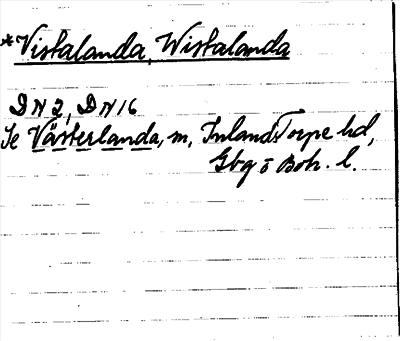 *Vistalanda, Wistalanda
DN 2, DN 16
Se Västerlanda, m, Inlands Torpe hd,
Gbg o Boh. l.